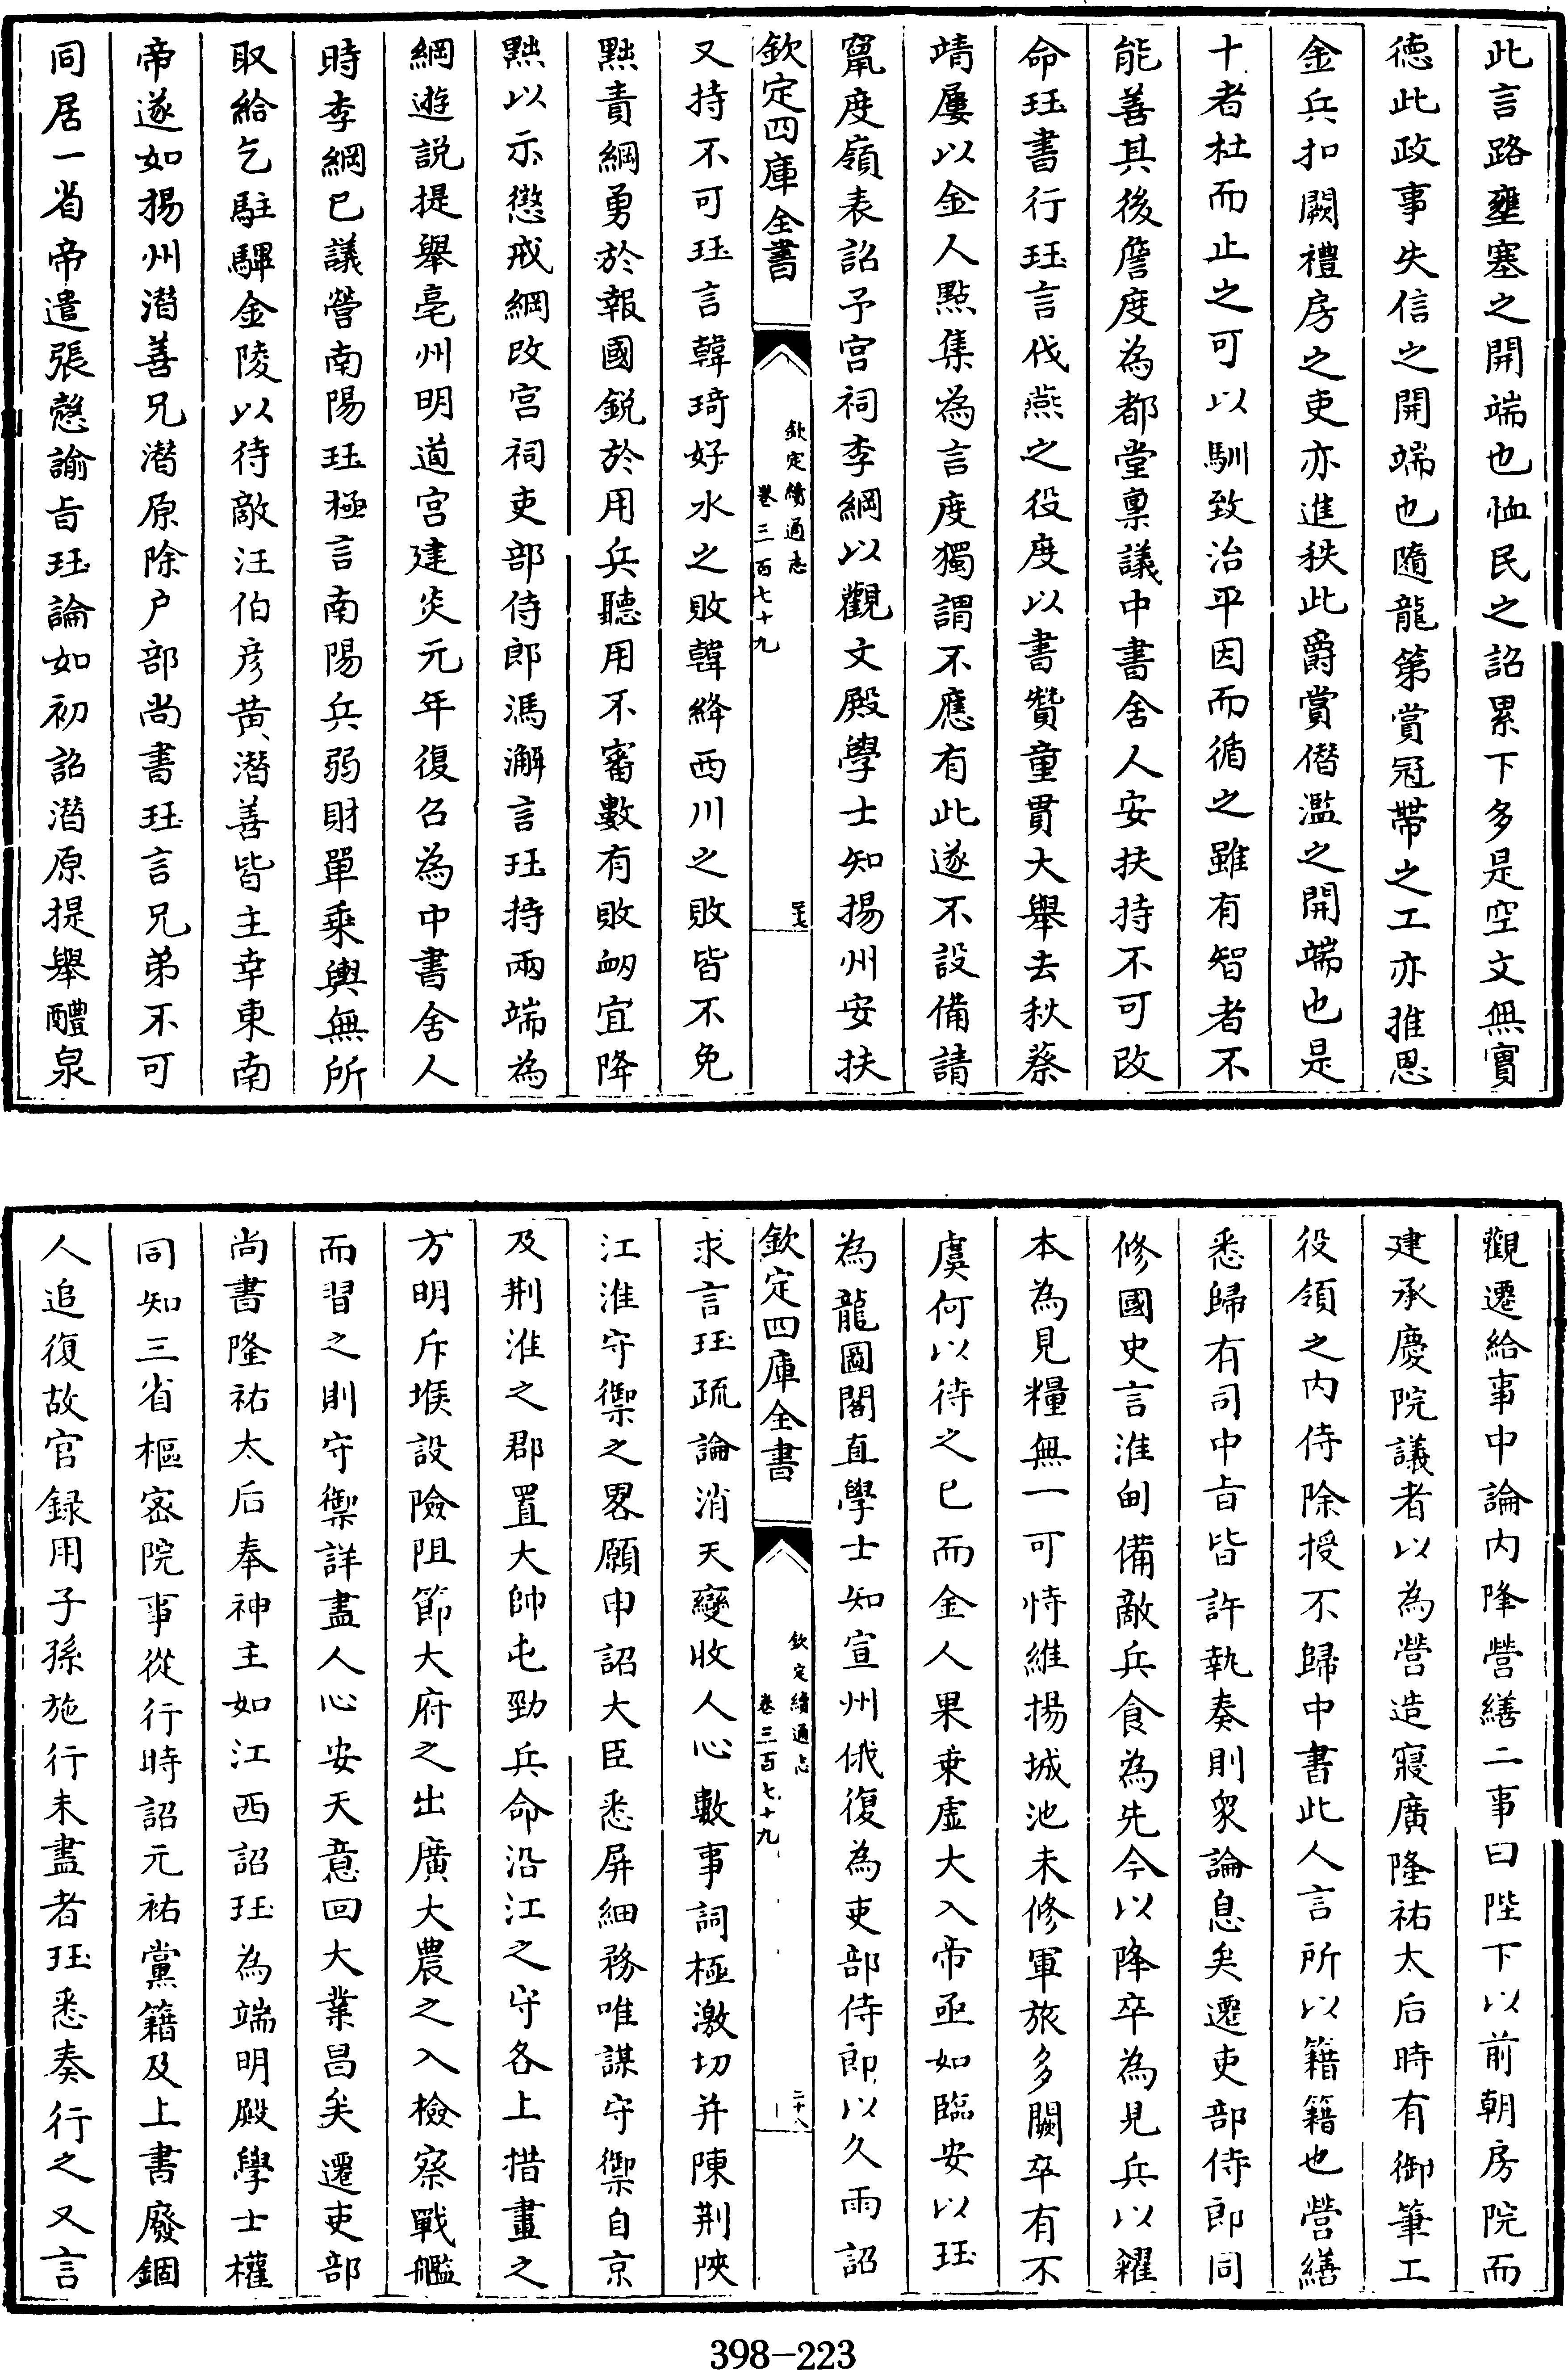 此言路壅塞之開端也恤民之詔累下多是空文無實
德此政事失信之開端也隨龍第賞冠帶之工亦推恩
金兵扣闕禮房之吏亦進秩此爵賞僭濫之開端也是
十者杜而止之可以馴致治平因而循之雖有智者不
能善其後詹度為都堂稟議中書舍人安扶持不可改
命珏書行珏言伐燕之役度以書贊童貫大舉去秋蔡
靖屢以金人點集為言度獨謂不應有此遂不設備請
竄度嶺表詔予宫祠李綱以觀文殿學士知揚州安扶
欽定四庫全書
欽定續通志
卷三百七十九
又持不可珏言韓琦好水之敗韓絳西川之敗皆不免
黜責綱勇於報國鋭於用兵聽用不審數有敗衂宜降
黜以示懲戒綱改宫祠吏部侍郎馮澥言珏持兩端為
綱遊説提舉亳州明道宫建炎元年復召為中書舍人
時李綱已議營南陽珏極言南陽兵弱財單乘輿無所
取給乞駐驆金陵以待敵汪伯彦黄潛善皆主幸東南
帝遂如揚州潛善兄潛原除户部尚書珏言兄弟不可
同居一省帝遣張慤諭旨珏論如初詔潛原提舉醴泉
觀遷給事中論内降營繕二事曰陛下以前朝房院而
建承慶院議者以為營造寖廣隆祐太后時有御筆工
役領之内侍除授不歸中書此人言所以籍籍也營繕
悉歸有司中旨皆許執奏則衆論息矣遷吏部侍郎同
修國史言淮甸備敵兵食為先今以降卒為見兵以糴
本為見糧無一可恃維揚城池未修軍旅多闕卒有不
虞何以待之已而金人果乗虚大入帝亟如臨安以珏
為龍圖閣直學士知宣州俄復為吏部侍郎以久雨詔
欽定四庫全書
欽定續通志
卷三百七十九
二十八
求言珏疏論消天變收人心數事詞極激切并陳荆陜
江淮守禦之畧願申詔大臣悉屏細務唯謀守禦自京
及荆淮之郡置大帥屯勁兵命沿江之守各上措畫之
方明斥堠設險阻節大府之出廣大農之入檢察戰艦
而習之則守禦詳盡人心安天意回大業昌矣遷吏部
尚書隆祐太后奉神主如江西詔珏為端明殿學士權
同知三省樞密院事從行時詔元祐黨籍及上書廢錮
人追復故官録用子孫施行未盡者珏悉奏行之又言
398-223